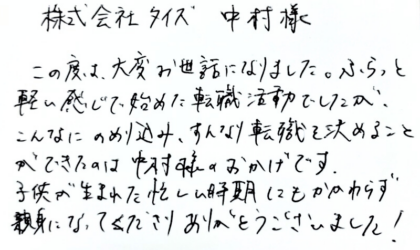 株式会社タイズ 中村様
この度は、大変お世話になりました。ふらっと
軽い感じで始めた転職活動でしたが、
こんなにのめり込み、すんなり転職を決めること
ができたのは中村様のおかげです。
子供が生まれた忙しい時期にもかかわらず
親身になってくださりありがとうございました!